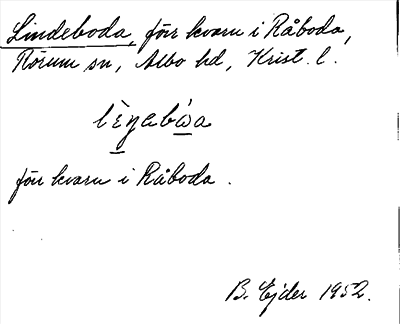 Lindeboda, förr kvarn i Råboda,
Rörum sn, Albo hd, Krist. l.
förr kvarn i Råboda.
B. Ejder 1952.